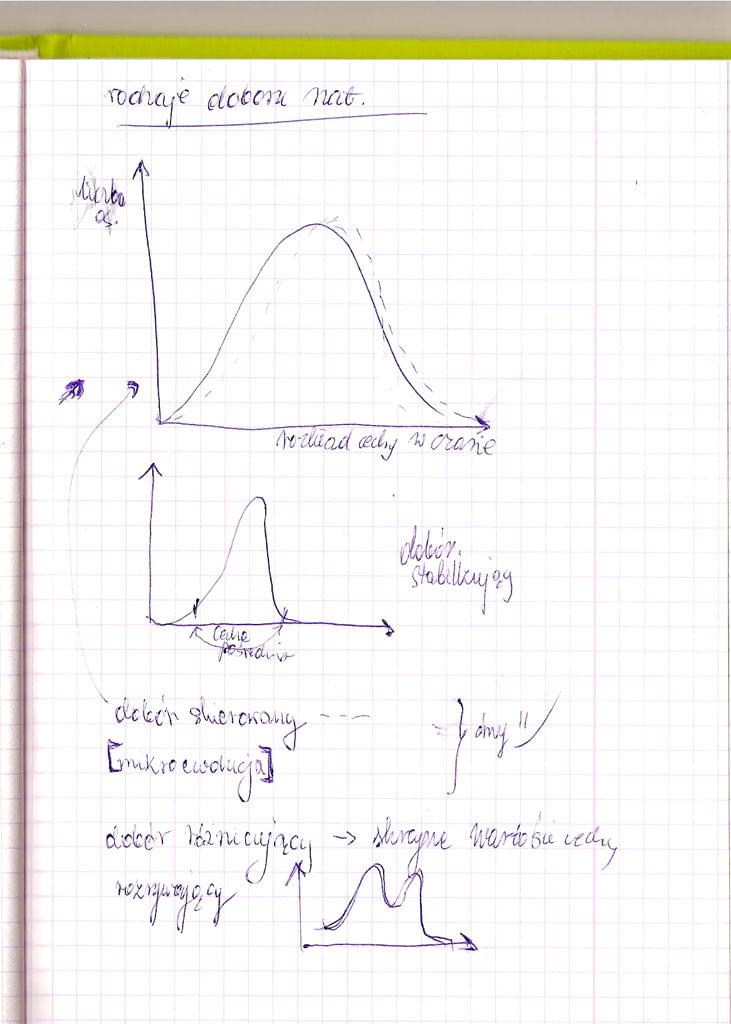 rodzaje doboru nat.
liczba
os.
rozkład cechy w czasie
dobór.
stabilizujący
cecha
pośrednia
dobór skierowany ----
[mikroewolucja]
dobór różnicujący → skrajne wartości cechy
rozrywający